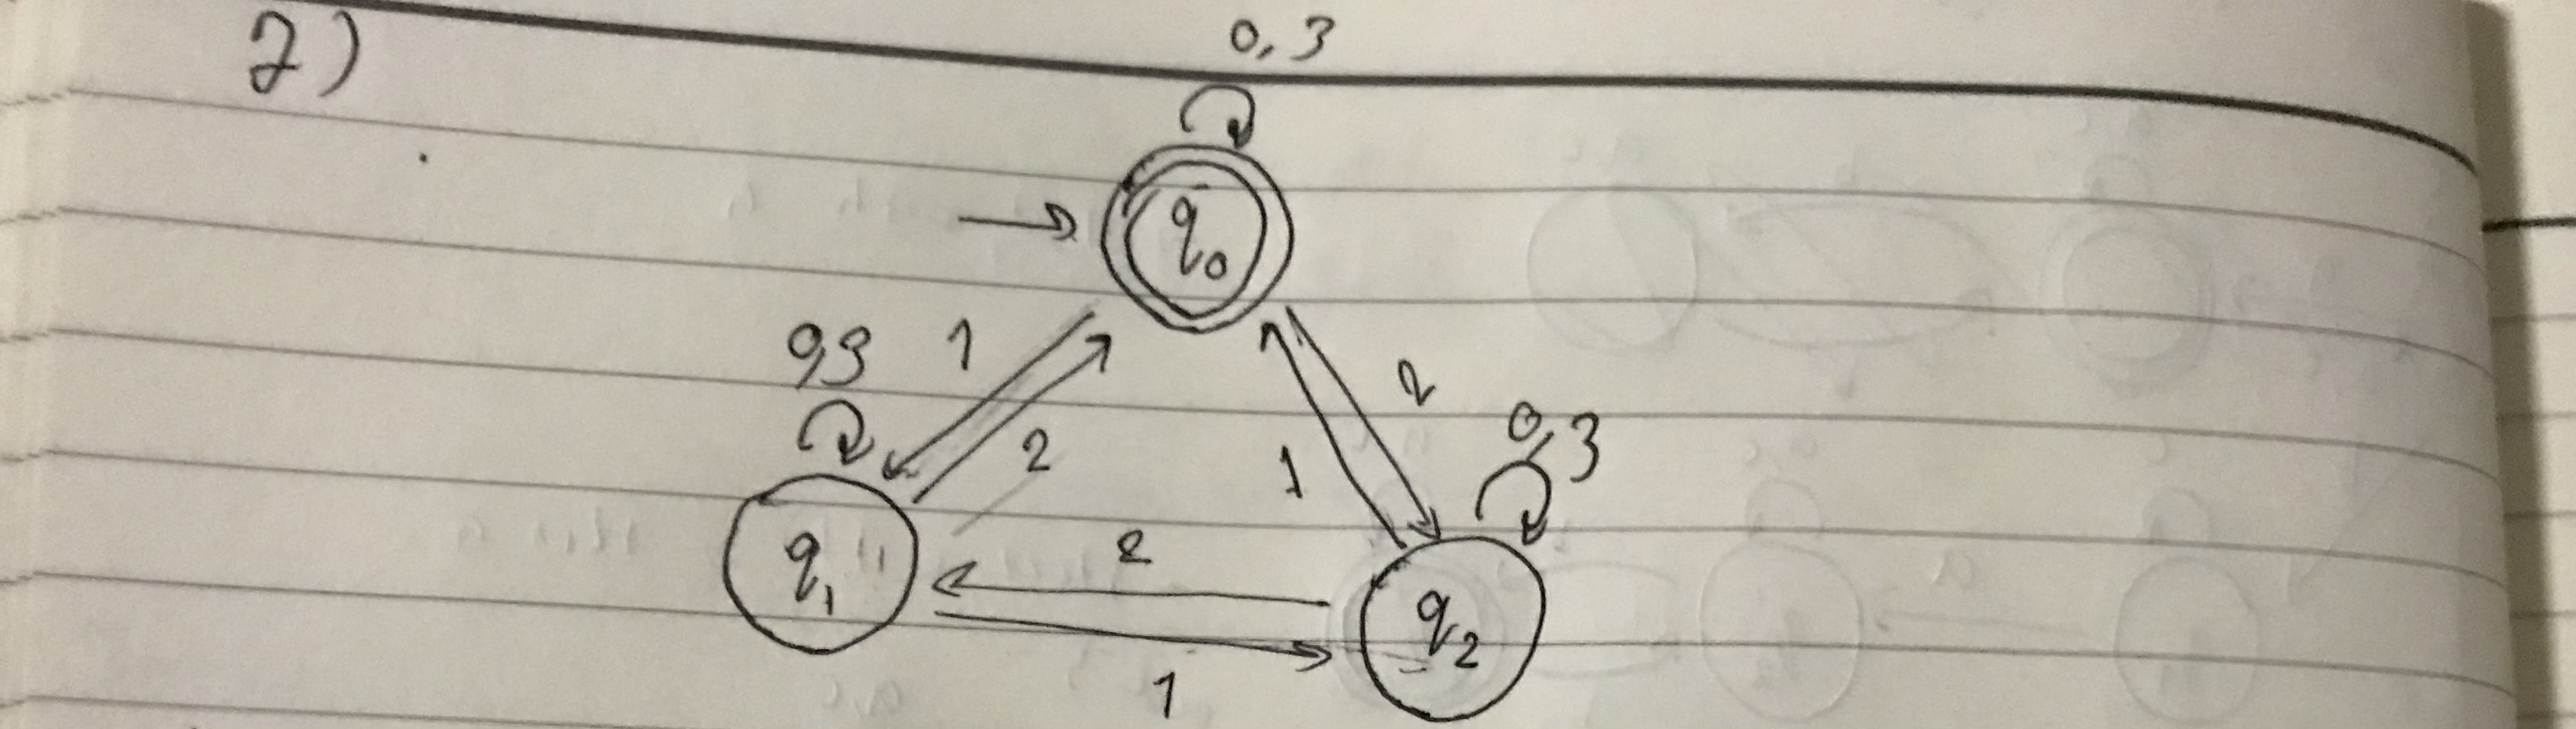 2)
0,3
q0
0,3
1
2
2
1
0,3
q1
2
q2
1